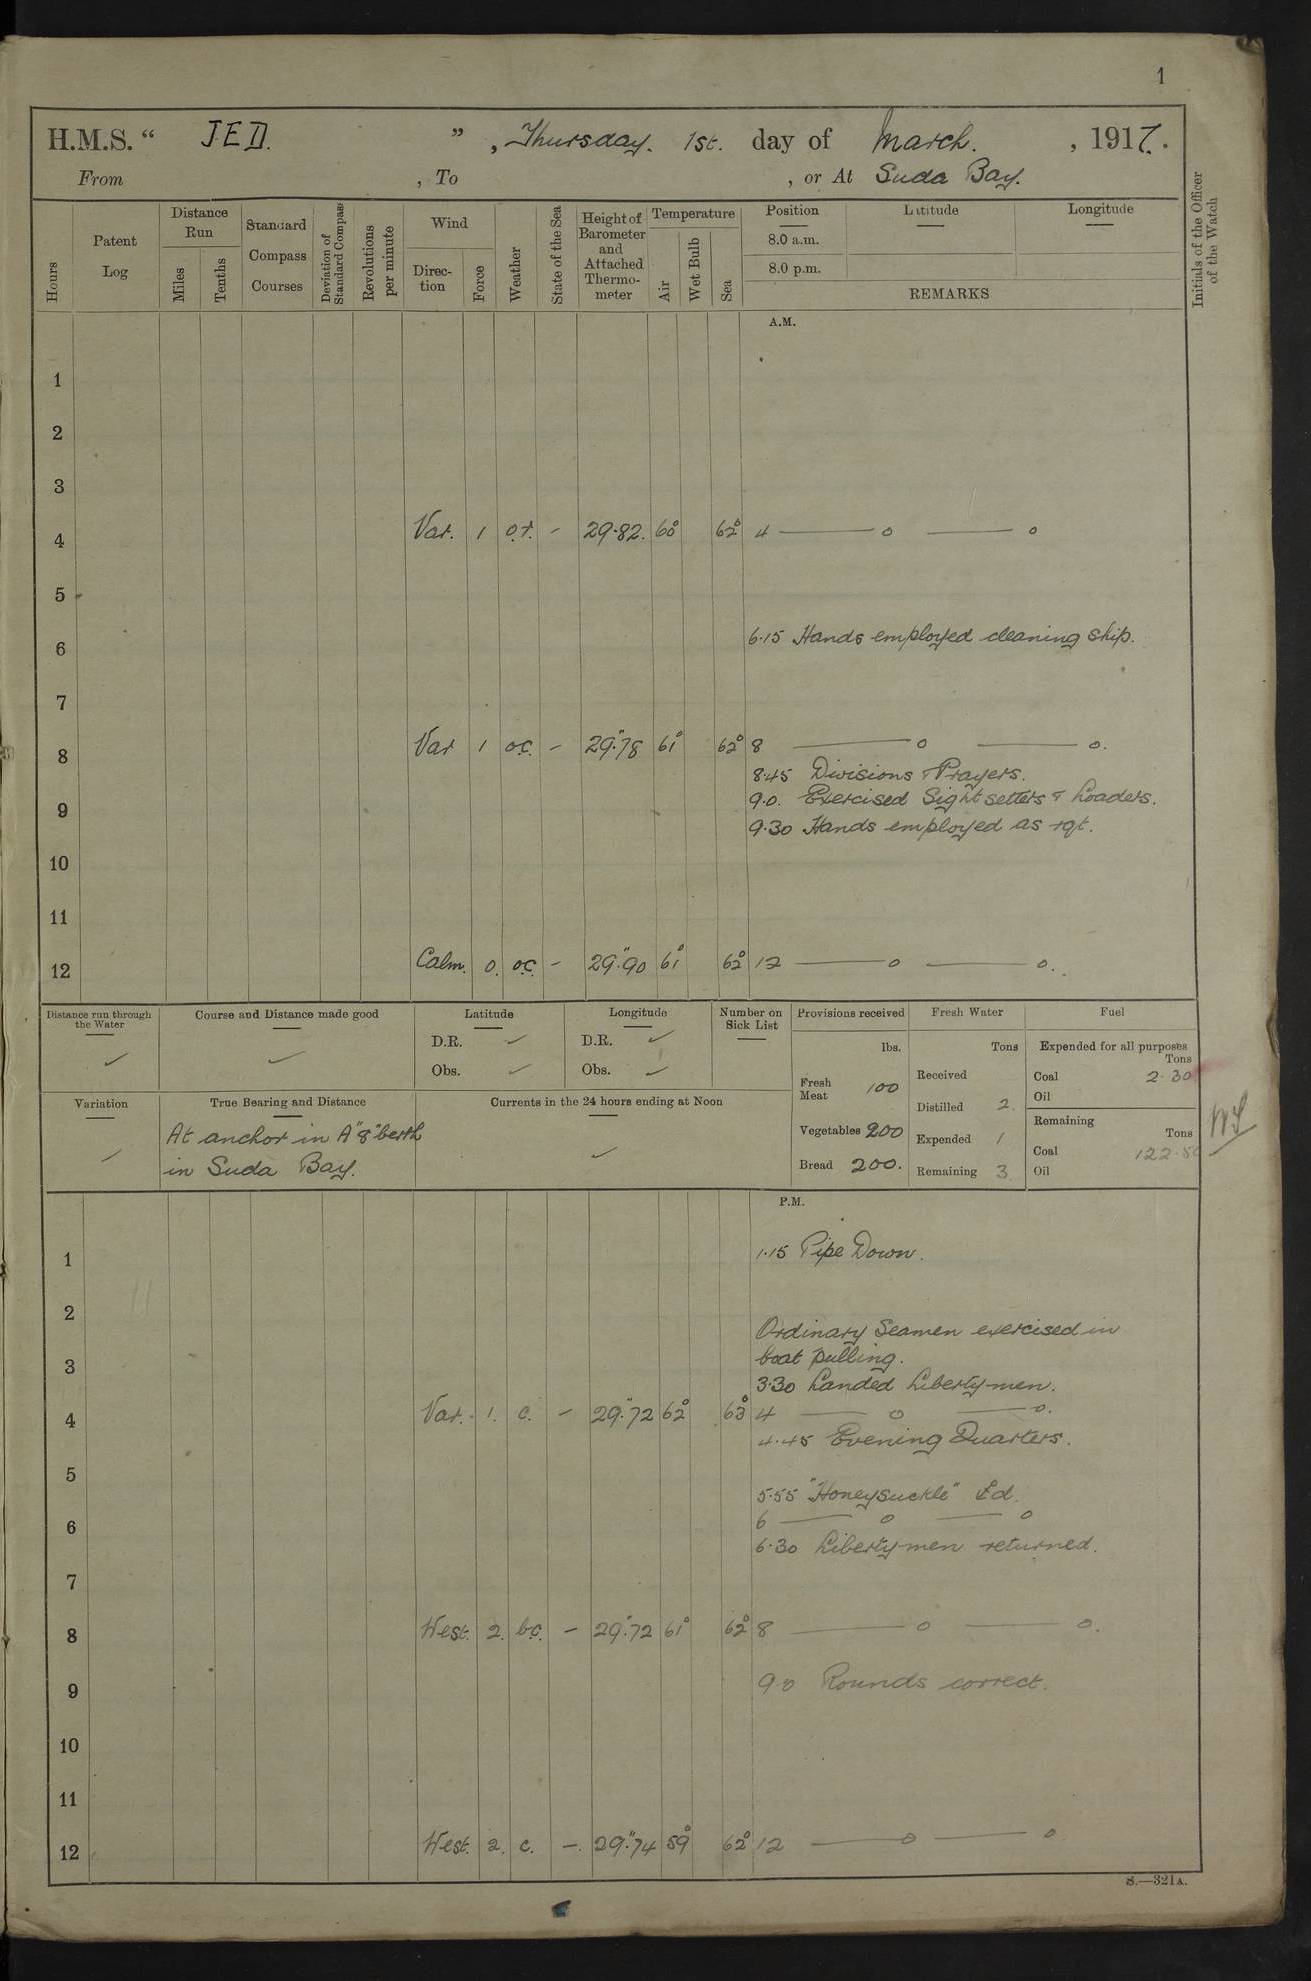 1
H.M.S. “ JED. ”, Thursday. 1st. day of March. , 1917.
From , To , or At Suda Bay.
Hours
Patent Log
Distance Run
Miles
Tenths
Standard Compass Courses
Deviation of Standard Compass
Revolutions per minute
Wind
Direc-tion
Force
Weather
State of the Sea
Height of Barometer and Attached Thermo-meter
Temperature
Air
Wet Bulb
Sea
Position
Latitude
Longitude
8.0 a.m.
8.0 p.m.
REMARKS
Initials of the Officer of the Watch
A.M.
1
2
3
4 Var. 1 o.r. - 29.82. 60° 62° 4 —— o —— o
5
6 6.15 Hands employed cleaning ship.
7
8 Var 1 o.c. - 29".78 61° 62° 8 —— o —— o.
8.45 Divisions & Prayers.
9.0. Exercised Sightsetters & Loaders.
9
9.30 Hands employed as rqt.
10
11
12 Calm. 0. o.c. - 29".90 61° 62° 12 —— o —— o.
Distance run through the Water
✓
Course and Distance made good
✓
Latitude
D.R. ✓
Obs. ✓
Longitude
D.R. ✓
Obs. ✓
Number on Sick List
Provisions received
lbs.
Fresh Meat 100
Vegetables 200
Bread 200.
Fresh Water
Tons
Received
Distilled 2.
Expended 1
Remaining 3
Fuel
Expended for all purposes
Tons
Coal 2.30
Oil
Remaining
Tons
Coal 122.50
Oil
Variation
✓
True Bearing and Distance
At anchor in A"8" berth
in Suda Bay.
Currents in the 24 hours ending at Noon
✓
P.M.
1 1.15 Pipe Down.
2
Ordinary Seamen exercised in
boat pulling.
3
3.30 Landed Libertymen.
4 Var. 1. c. - 29".72 62° 63° 4 —— o —— o.
4.45 Evening Quarters.
5
5.55 "Honeysuckle" Ɛd.
6 —— o —— o
6
6.30 Libertymen returned.
7
8 West. 2. b.c. - 29".72 61° 62° 8 —— o —— o.
9 9.0 Rounds correct.
10
11
12 West. 2. c. - 29".74 59° 62° 12 —— o —— o
S.—321A.